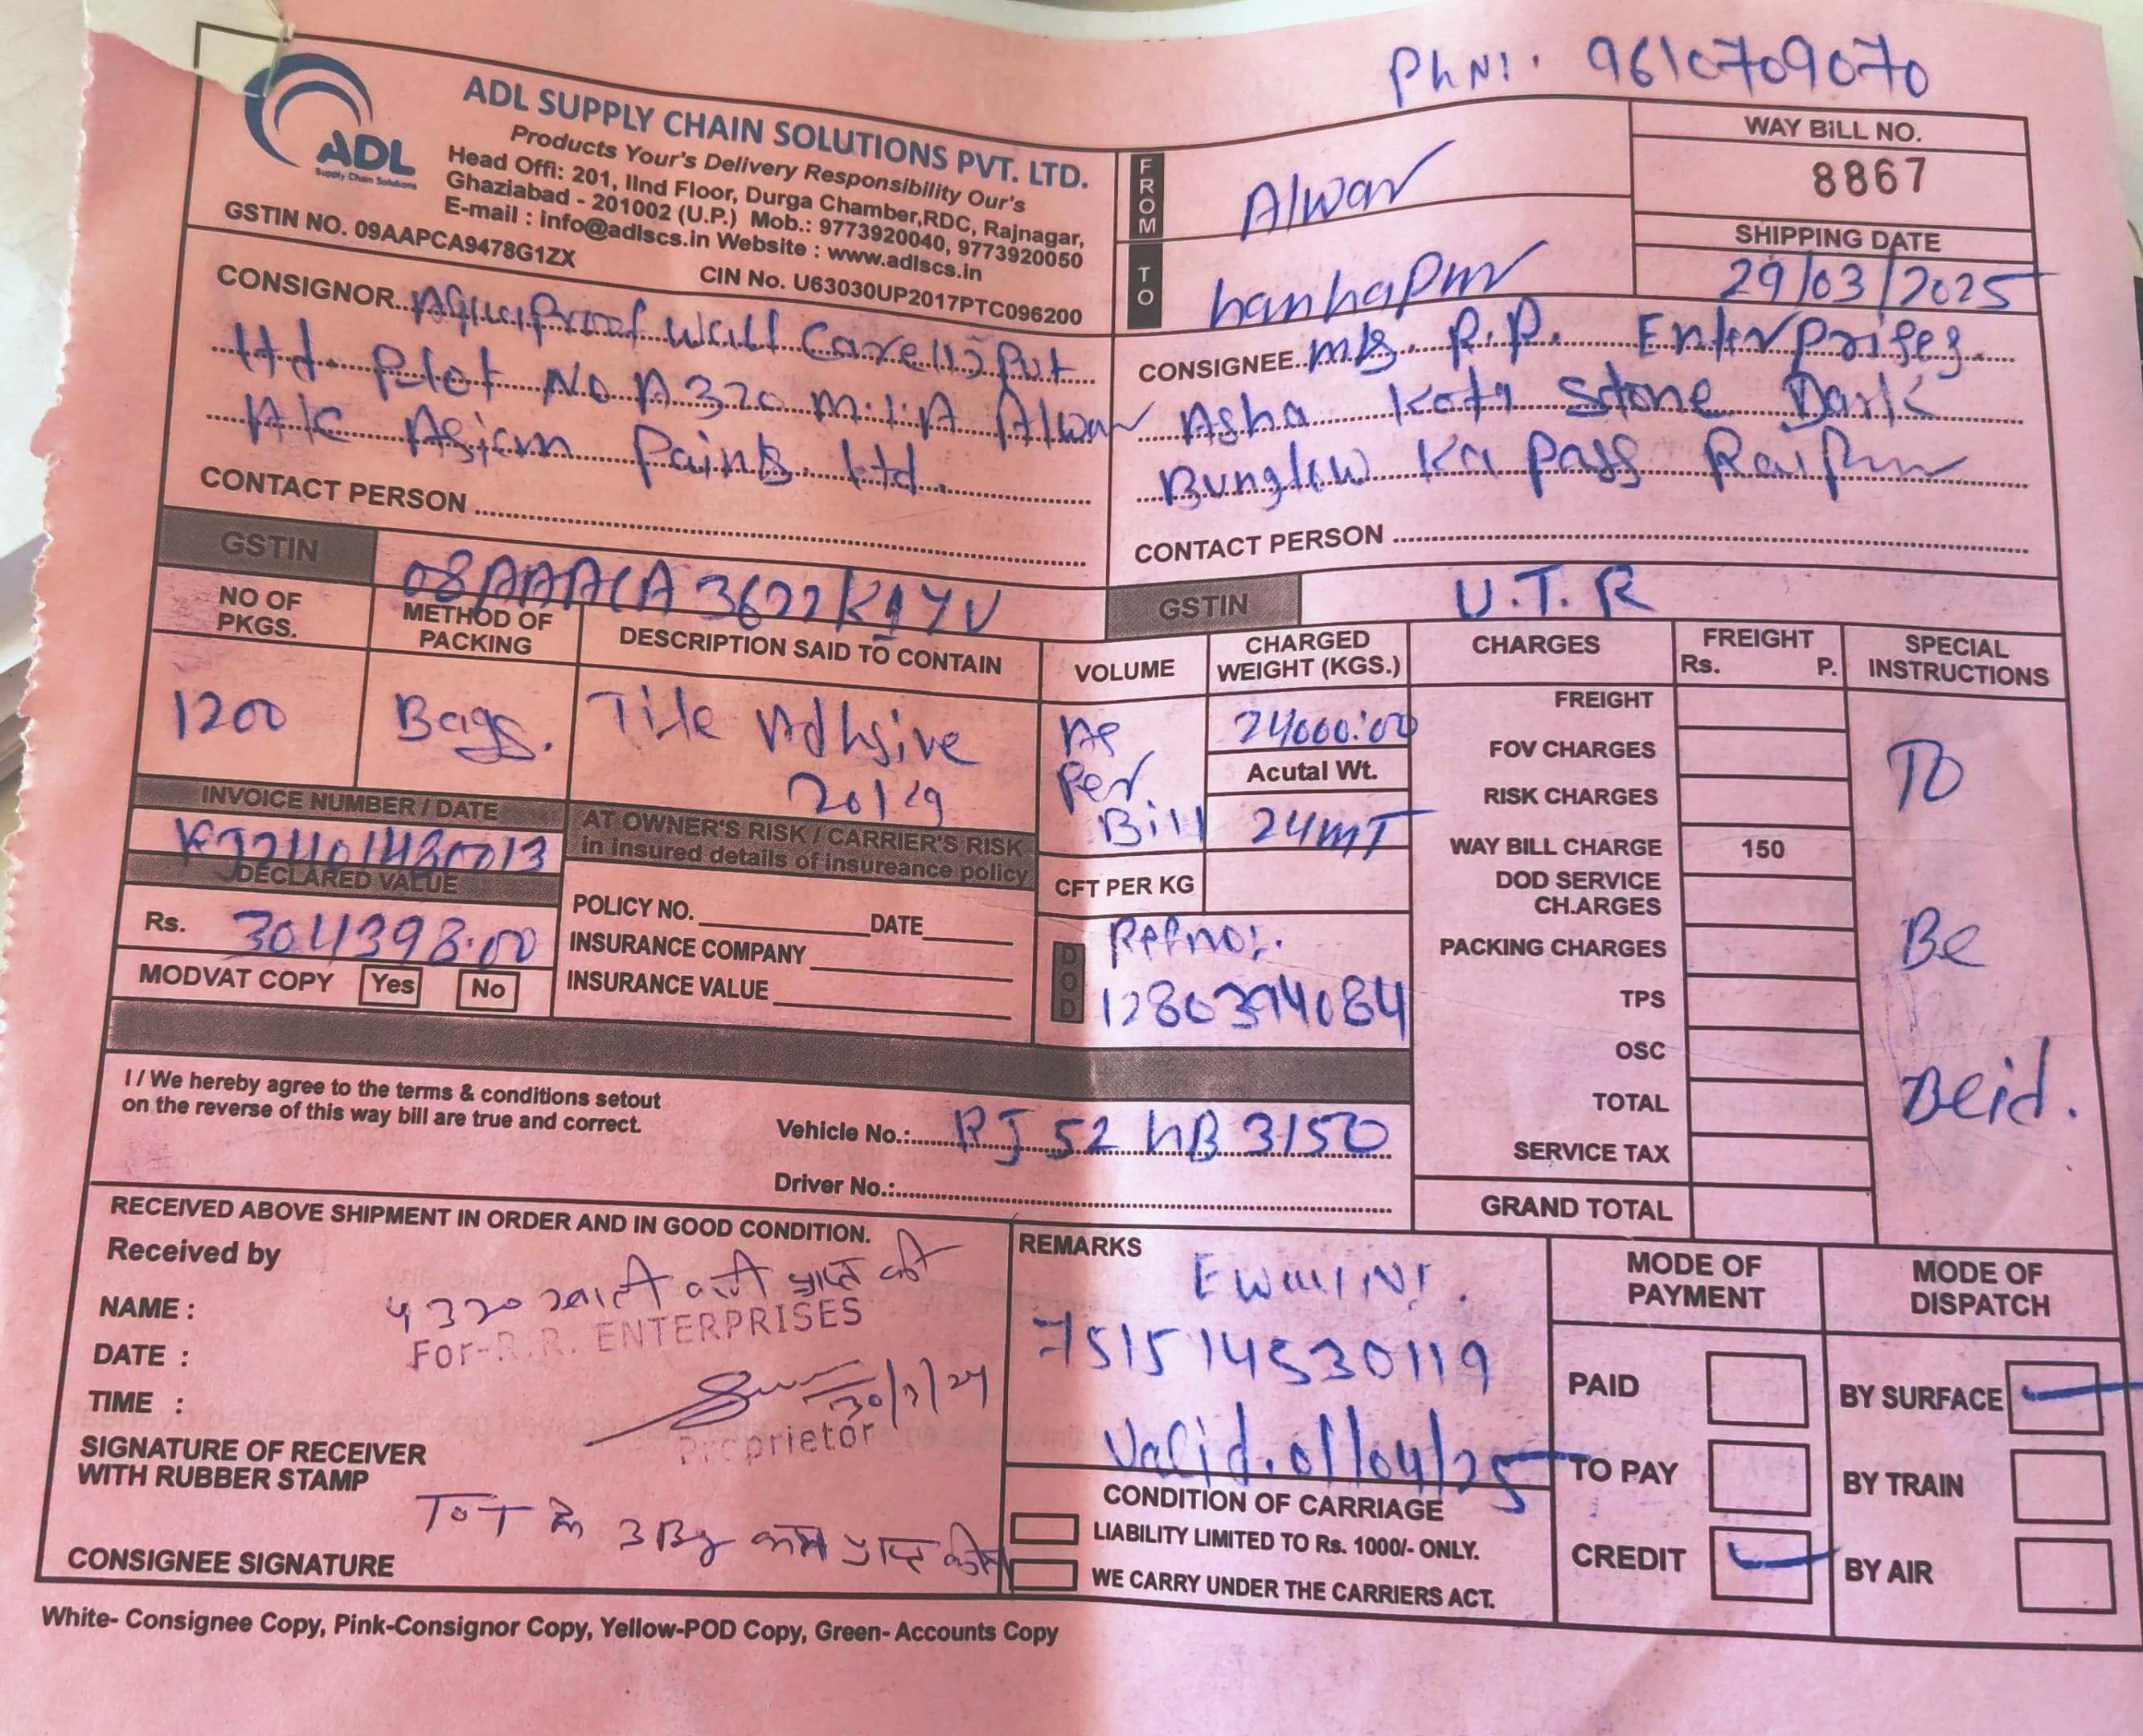 PhN! . 9610709070
ADL
Supply Chain Solutions
ADL SUPPLY CHAIN SOLUTIONS PVT. LTD.
Products Your's Delivery Responsibility Our's
Head Offi: 201, IInd Floor, Durga Chamber,RDC, Rajnagar,
Ghaziabad - 201002 (U.P.) Mob.: 9773920040, 9773920050
E-mail : info@adlscs.in Website : www.adlscs.in
GSTIN NO. 09AAPCA9478G1ZX
CIN No. U63030UP2017PTC096200
FROM
Alwar
TO
WAY BILL NO.
8867
SHIPPING DATE
29/03/2025
CONSIGNOR.. Proof Wall Care Pvt
ltd. Plot No A 320 M.I.A Alwar
A/C Asian Paints. ltd.
CONTACT PERSON
CONSIGNEE.. Enterprises
Asha Kota Stone Dark
Bunglow Ka Pass
CONTACT PERSON
GSTIN
GSTIN U.T.R
NO OF PKGS.
METHOD OF PACKING
DESCRIPTION SAID TO CONTAIN
VOLUME
CHARGED WEIGHT (KGS.)
CHARGES
FREIGHT
Rs. P.
SPECIAL INSTRUCTIONS
1200
Bags.
Tile Adhsive
As
Per
Bill
24000:00
Acutal Wt.
24MT
FREIGHT
FOV CHARGES
RISK CHARGES
WAY BILL CHARGE 150
DOD SERVICE
CH.ARGES
PACKING CHARGES
TPS
OSC
TOTAL
SERVICE TAX
GRAND TOTAL
TO
Be
INVOICE NUMBER / DATE
DECLARED VALUE
Rs. 304398.00
MODVAT COPY Yes No
AT OWNER'S RISK / CARRIER'S RISK
in insured details of insureance policy
POLICY NO. DATE
INSURANCE COMPANY
INSURANCE VALUE
CFT PER KG
DOD
1280394084
I / We hereby agree to the terms & conditions setout
on the reverse of this way bill are true and correct.
Vehicle No.: RJ 52 3150
Driver No.:
RECEIVED ABOVE SHIPMENT IN ORDER AND IN GOOD CONDITION.
Received by
NAME :
For-R.R. ENTERPRISES
DATE :
TIME :
Proprietor
SIGNATURE OF RECEIVER
WITH RUBBER STAMP
CONSIGNEE SIGNATURE
REMARKS
751514530119
Valid. 01/04/25
CONDITION OF CARRIAGE
LIABILITY LIMITED TO Rs. 1000/- ONLY.
WE CARRY UNDER THE CARRIERS ACT.
MODE OF PAYMENT
PAID
TO PAY
CREDIT
MODE OF DISPATCH
BY SURFACE
BY TRAIN
BY AIR
White- Consignee Copy, Pink-Consignor Copy, Yellow-POD Copy, Green- Accounts Copy